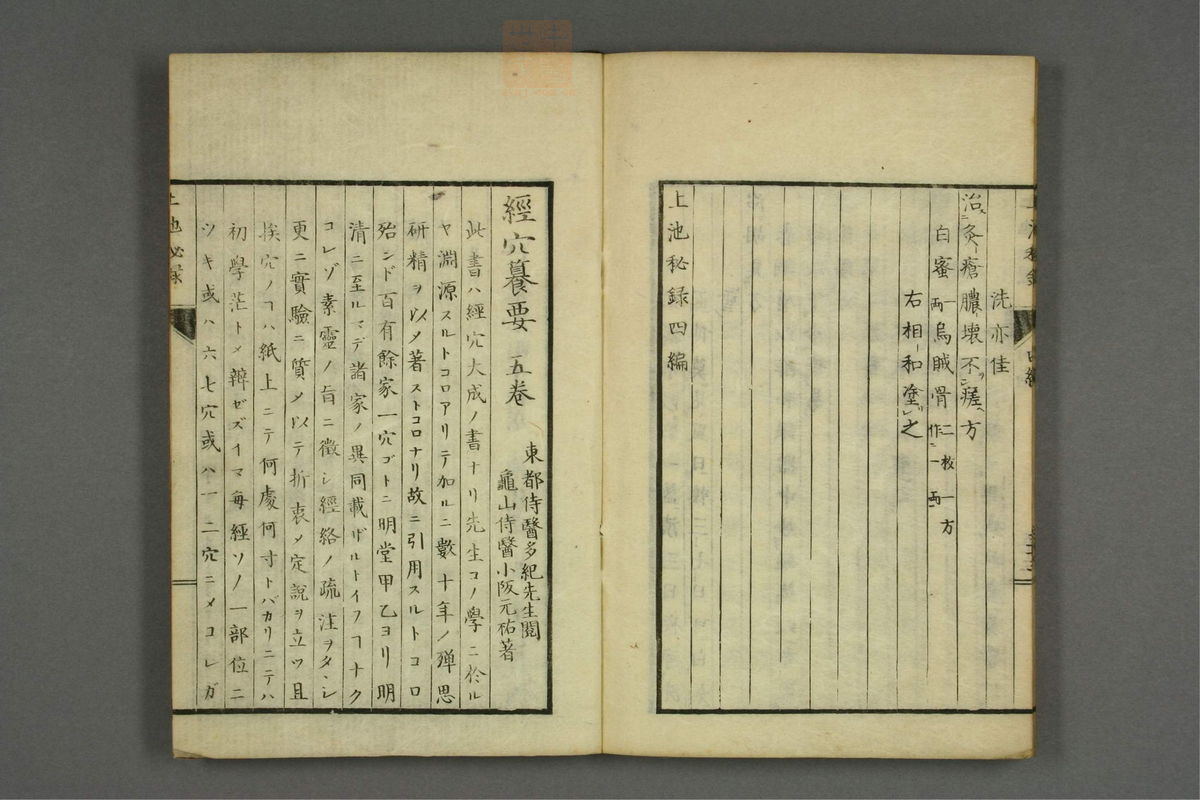 洗亦佳
治灸瘡膿壊不瘥方
白蜜一両烏賊骨二枚一方作一両
右相和塗之
上池秘録四編
經穴纂要 五卷
東都侍醫多紀先生閱
龜山侍醫小阪元祐著
此書ハ經穴大成ノ書ナリ先生コノ學ニ於ル
ヤ淵源スルトコロアリテ加ルニ數十年ノ殫思
研精ヲ以メ著ストコロナリ故ニ引用スルトコロ
殆ンド百有餘家一穴ゴトニ明堂甲乙ヨリ明
清ニ至ルマデ諸家ノ異同載ザルトイフヿナク
コレゾ素靈ノ旨ニ徵シ經絡ノ疏注ヲタヾシ
更ニ實驗ニ質メ以テ折衷メ定說ヲ立ツ且
挨穴ノヿハ紙上ニテ何處何寸トバカリニテハ
初學茫トメ辨ゼズイマ每經ソノ一部位ニ
ツキ或ハ六七穴或ハ一二穴ニメコレガ
上池秘録